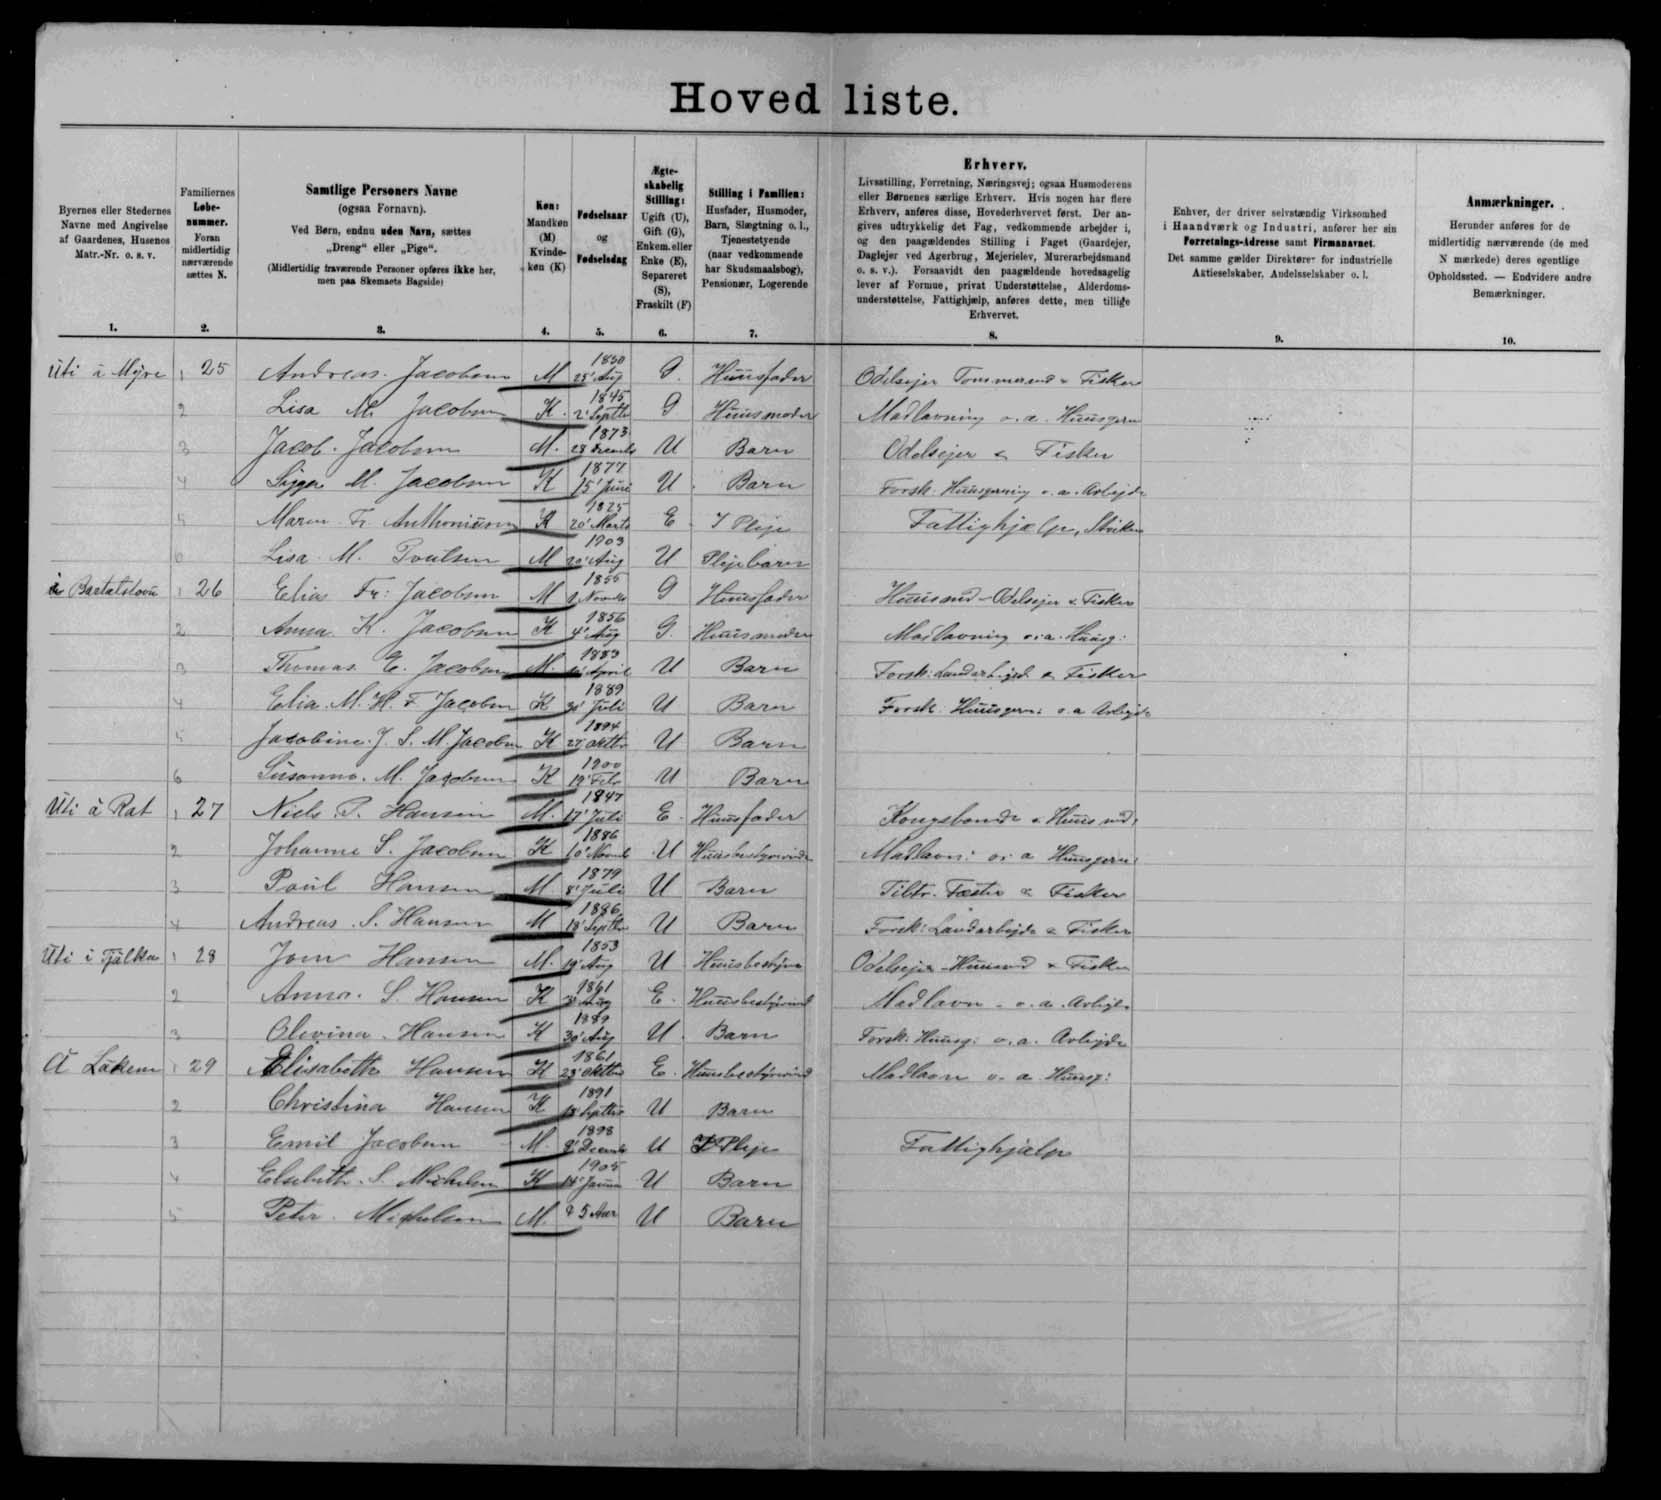 Hoved liste.
Byernes eller Stedernes Navne med Angivelse af Gaardenes, Husenes Matr.-Nr. o. s. v.
Familiernes Løbe-nummer. Foran midlertidig nærværende sættes N.
Samtlige Personers Navne
(ogsaa Fornavn).
Ved Børn, endnu uden Navn, sættes
„Dreng“ eller „Pige“.
(Midlertidig fraværende Personer opføres ikke her, men paa Skemaets Bagside)
Køn: Mandkøn (M) Kvinde-køn (K)
Fødselsaar og Fødselsdag
Ægte-skabelig Stilling: Ugift (U), Gift (G), Enkem. eller Enke (E), Separeret (S), Fraskilt (F)
Stilling i Familien: Husfader, Husmoder, Barn, Slægtning o. l., Tjenestetyende (naar vedkommende har Skudsmaalsbog), Pensionær, Logerende
Erhverv.
Livsstilling, Forretning, Næringsvej; ogsaa Husmoderens eller Børnenes særlige Erhverv. Hvis nogen har flere Erhverv, anføres disse, Hovederhvervet først. Der angives udtrykkelig det Fag, vedkommende arbejder i, og den paagældendes Stilling i Faget (Gaardejer, Daglejer ved Agerbrug, Mejerielev, Murerarbejdsmand o. s. v.). Forsaavidt den paagældende hovedsagelig lever af Formue, privat Understøttelse, Alderdoms-understøttelse, Fattighjælp, anføres dette, men tillige Erhvervet.
Enhver, der driver selvstændig Virksomhed i Haandværk og Industri, anfører her sin Forretnings-Adresse samt Firmanavnet. Det samme gælder Direktører for industrielle Aktieselskaber, Andelsselskaber o. l.
Anmærkninger.
Herunder anføres for de midlertidig nærværende (de med N mærkede) deres egentlige Opholdssted. — Endvidere andre Bemærkninger.
1. 2. 3. 4. 5. 6. 7. 8. 9. 10.
Uti i Mýre 1 25 Andreas Jacobsen M 1850 25' Aug G. Huusfader Odelsejer Tømmermd & Fisker
2 Lisa M. Jacobsen K. 1845 2' Septbr G Huusmoder Madlavning o. a. Huusgern
3 Jacob Jacobsen M. 1873 28 Decemb U Barn Odelsejer & Fisker
4 Sigga M. Jacobsen K 1877 15' Juni U. Barn Forsk. Huusgerning o. a. Arbejde
5 Maren Fr. Anthoniusen K 1825 20' Marts E I Pleje Fattighjælp,
6 Lisa M. Poulsen M 1903 20' Aug U Plejebarn
26 Elias Fr. Jacobsen M 1855 1 Novbr G Huusfader Huusmd - Odelsejer & Fisker
2 Anna K. Jacobsen K 1856 4' Aug G. Huusmoder Madlavning o. a. Huusg:
3 Thomas E. Jacobsen M. 1883 April U Barn Forsk: Landarbejde & Fisker
4 Elia M. H. F. Jacobsen K 1889 30' Juli U Barn Forsk. Huusgern: o. a Arbejde
5 Jacobine J. S. M. Jacobsen K 1894 27' Oktbr U Barn
6 Susanna M. Jacobsen K 1900 19' Feb U Barn
Uti á Rat 1 27 Niels P. Hansen M. 1847 17' Juli E. Huusfader Kongsbonde & Huusmd:
2 Johanne S. Jacobsen K 1886 10' Novemb U Huusbestyrerinde Madlavn: o. a Huusgern:
3 Poul Hansen M 1879 8' Juli U Barn Tiltr. Fæster & Fisker
4 Andreas S. Hansen M 1886 18' Septbr U Barn Forsk: Landarbejde & Fisker
Uti i 1 28 Hansen M. 1853 19' Aug U Huusbestyrer Odelsejer - Huusmd & Fisker
2 Anna S. Hansen K 1861 Aug E. Huusbestyrerind Madlavn - o. a. Arbejde
3 Olevina Hansen K 1889 30' Aug U. Barn Forsk. Huusg: o. a. Arbejde
1 29 Elisabeth Hansen K 1861 28' Oktbr E. Huusbestyrerind Madlavn o. a Huusg:
2 Christina Hansen K 1891 18' Septbr U Barn
3 Emil Jacobsen M. 1898 8' Decemb U I Pleje Fattighjælp
4 Elsebeth S. Michelsen K 1905 14' Januar U Barn
5 Peter Michelsen M. 5 Aar U Barn